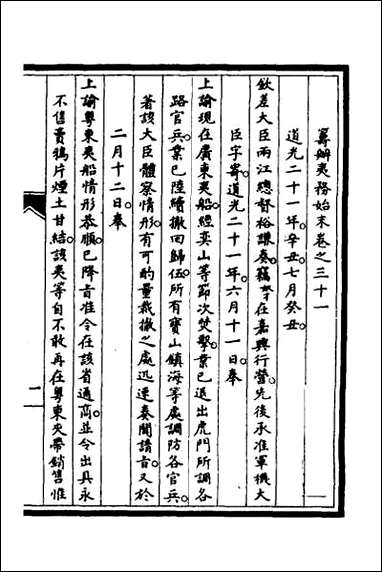 籌辦夷務始末卷之三十一
道光二十一年辛丑七月癸丑。
欽差大臣兩江總督裕謙奏。竊奴才在嘉興行營。先後承准軍機大
臣字寄。道光二十一年六月十一日奉
上諭現在廣東夷船。經奕山等節次焚擊。業已退出虎門所調各
路官兵。業已陸續撤回歸伍。所有寶山鎮海等處調防各官兵。
著該大臣體察情形。有可酌量裁撤之處迅速奏聞請旨。又於
二月十二日。奉
上諭粵東夷船情形恭順。已降旨准令在該省通商。並令出具永
不售賣鴉片煙土甘結。該夷等自不敢再在粵東夾帶銷售惟
一